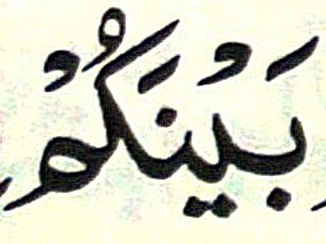 بَيْنَكُمْ